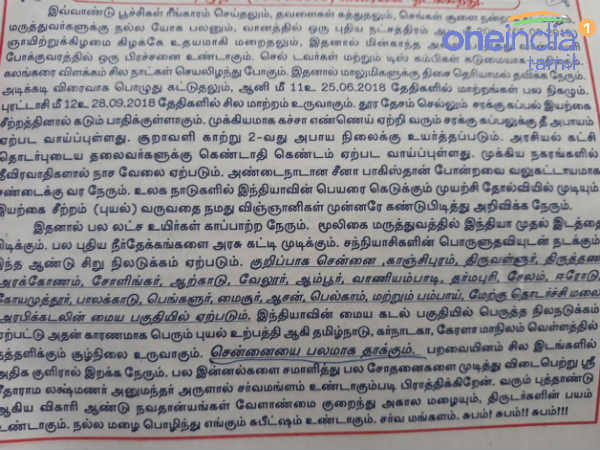 இவ்வாண்டு பூச்சிகள் ரீங்காரம் செய்தலும், தவளைகள் கத்துதலும், செங்கள் குளை
மருத்துவர்களுக்கு நல்ல யோக பலனும், வானத்தில் ஒரு புதிய நட்சத்திரம்
ஞாயிற்றுக்கிழமை கிழக்கே உதயமாகி மறைதலும், இதனால் மின்காந்த
போக்குவரத்தில் ஒரு பிரச்சனை உண்டாகும். செல் டவர்கள் மற்றும் டிஸ் கம்பிகள் கடுமையாக
கலங்கரை விளக்கம் சில நாட்கள் செயலிழந்து போகும். இதனால் மாலுமிகளுக்கு திசை தெரியாமல் தவிக்க நேரும்.
அடிக்கடி விரைவாக பொழுது கட்டுதலும், ஆனி மீ 11உ 25.06.2018 தேதிகளில் மாற்றங்கள் பல நிகழும்.
புரட்டாசி மீ 12உ 28.09.2018 தேதிகளில் சில மாற்றம் உருவாகும். தூர தேசம் செல்லும் சரக்கு கப்பல் இயற்கை
சீற்றத்தினால் கடும் பாதிக்குள்ளாகும். முக்கியமாக கச்சா எண்ணெய் ஏற்றி வரும் சரக்கு கப்பலுக்கு தீ அபாயம்
ஏற்பட வாய்ப்புள்ளது. சூறாவளி காற்று 2-வது அபாய நிலைக்கு உயர்த்தப்படும். அரசியல் கட்சி
தொடர்புடைய தலைவர்களுக்கு கெண்டாதி கெண்டம் ஏற்பட வாய்ப்புள்ளது. முக்கிய நகரங்களில்
தீவிரவாதிகளால் நாச வேலை ஏற்படும். அண்டைநாடான சீனா பாகிஸ்தான் போன்றவை வலுகட்டாயமாக
சண்டைக்கு வர நேரும். உலக நாடுகளில் இந்தியாவின் பெயரை கெடுக்கும் முயற்சி தோல்வியில் முடியும்
இயற்கை சீற்றம் (புயல்) வருவதை நமது விஞ்ஞானிகள் முன்னரே கண்டுபிடித்து அறிவிக்க நேரும்.
இதனால் பல லட்ச உயிர்கள் காப்பாற்ற நேரும். மூலிகை மருத்துவத்தில் இந்தியா முதல் இடத்தை
பிடிக்கும். பல புதிய நீர்தேக்கங்களை அரசு கட்டி முடிக்கும். சந்நியாசிகளின் பொருளுதவியுடன் நடக்கும்
இந்த ஆண்டு சிறு நிலடுக்கம் ஏற்படும். குறிப்பாக சென்னை ,காஞ்சிபுரம், திருவள்ளூர், திருத்தணி
அரக்கோணம், சோளிங்கர், ஆற்காடு, வேலூர், ஆம்பூர், வாணியம்பாடி, தர்மபுரி, சேலம், ஈரோடு,
கோயமுத்தூர், பாலக்காடு, பெங்களூர், மைசூர், ஆசன், பெல்காம், மற்றும் பம்பாய், மேற்கு தொடர்ச்சி மலை
அரபிக்கடலின் மைய பகுதியில் ஏற்படும். இந்தியாவின் மைய கடல் பகுதியில் பெருத்த நிலநடுக்கம்
ஏற்பட்டு அதன் காரணமாக பெரும் புயல் உற்பத்தி ஆகி தமிழ்நாடு, கர்நாடகா, கேரளா மாநிலம் வெள்ளத்தில்
தத்தளிக்கும் சூழ்நிலை உருவாகும். சென்னையை பலமாக தாக்கும். பறவையினம் சில இடங்களில்
அதிக குளிரால் இறக்க நேரும். பல இன்னல்களை சமாளித்து பல சோதனைகளை முடித்து விடைபெற்று ஸ்ரீ
சீதாராம லக்ஷ்மணர் அனுமந்தர் அருளால் சர்வமங்களம் உண்டாகும்படி பிராத்திக்கிறேன். வரும் புத்தாண்டு
ஆகிய விகாரி ஆண்டு நவதான்யங்கள் வேளாண்மை குறைந்து அகால மழையும், திருடர்களின் பயம்
உண்டாகும். நல்ல மழை பொழிந்து எங்கும் சுபீட்ஷம் உண்டாகும். சர்வ மங்களம். சுபம்! சுபம்!! சுபம்!!!
oneindia
தமிழ்
1